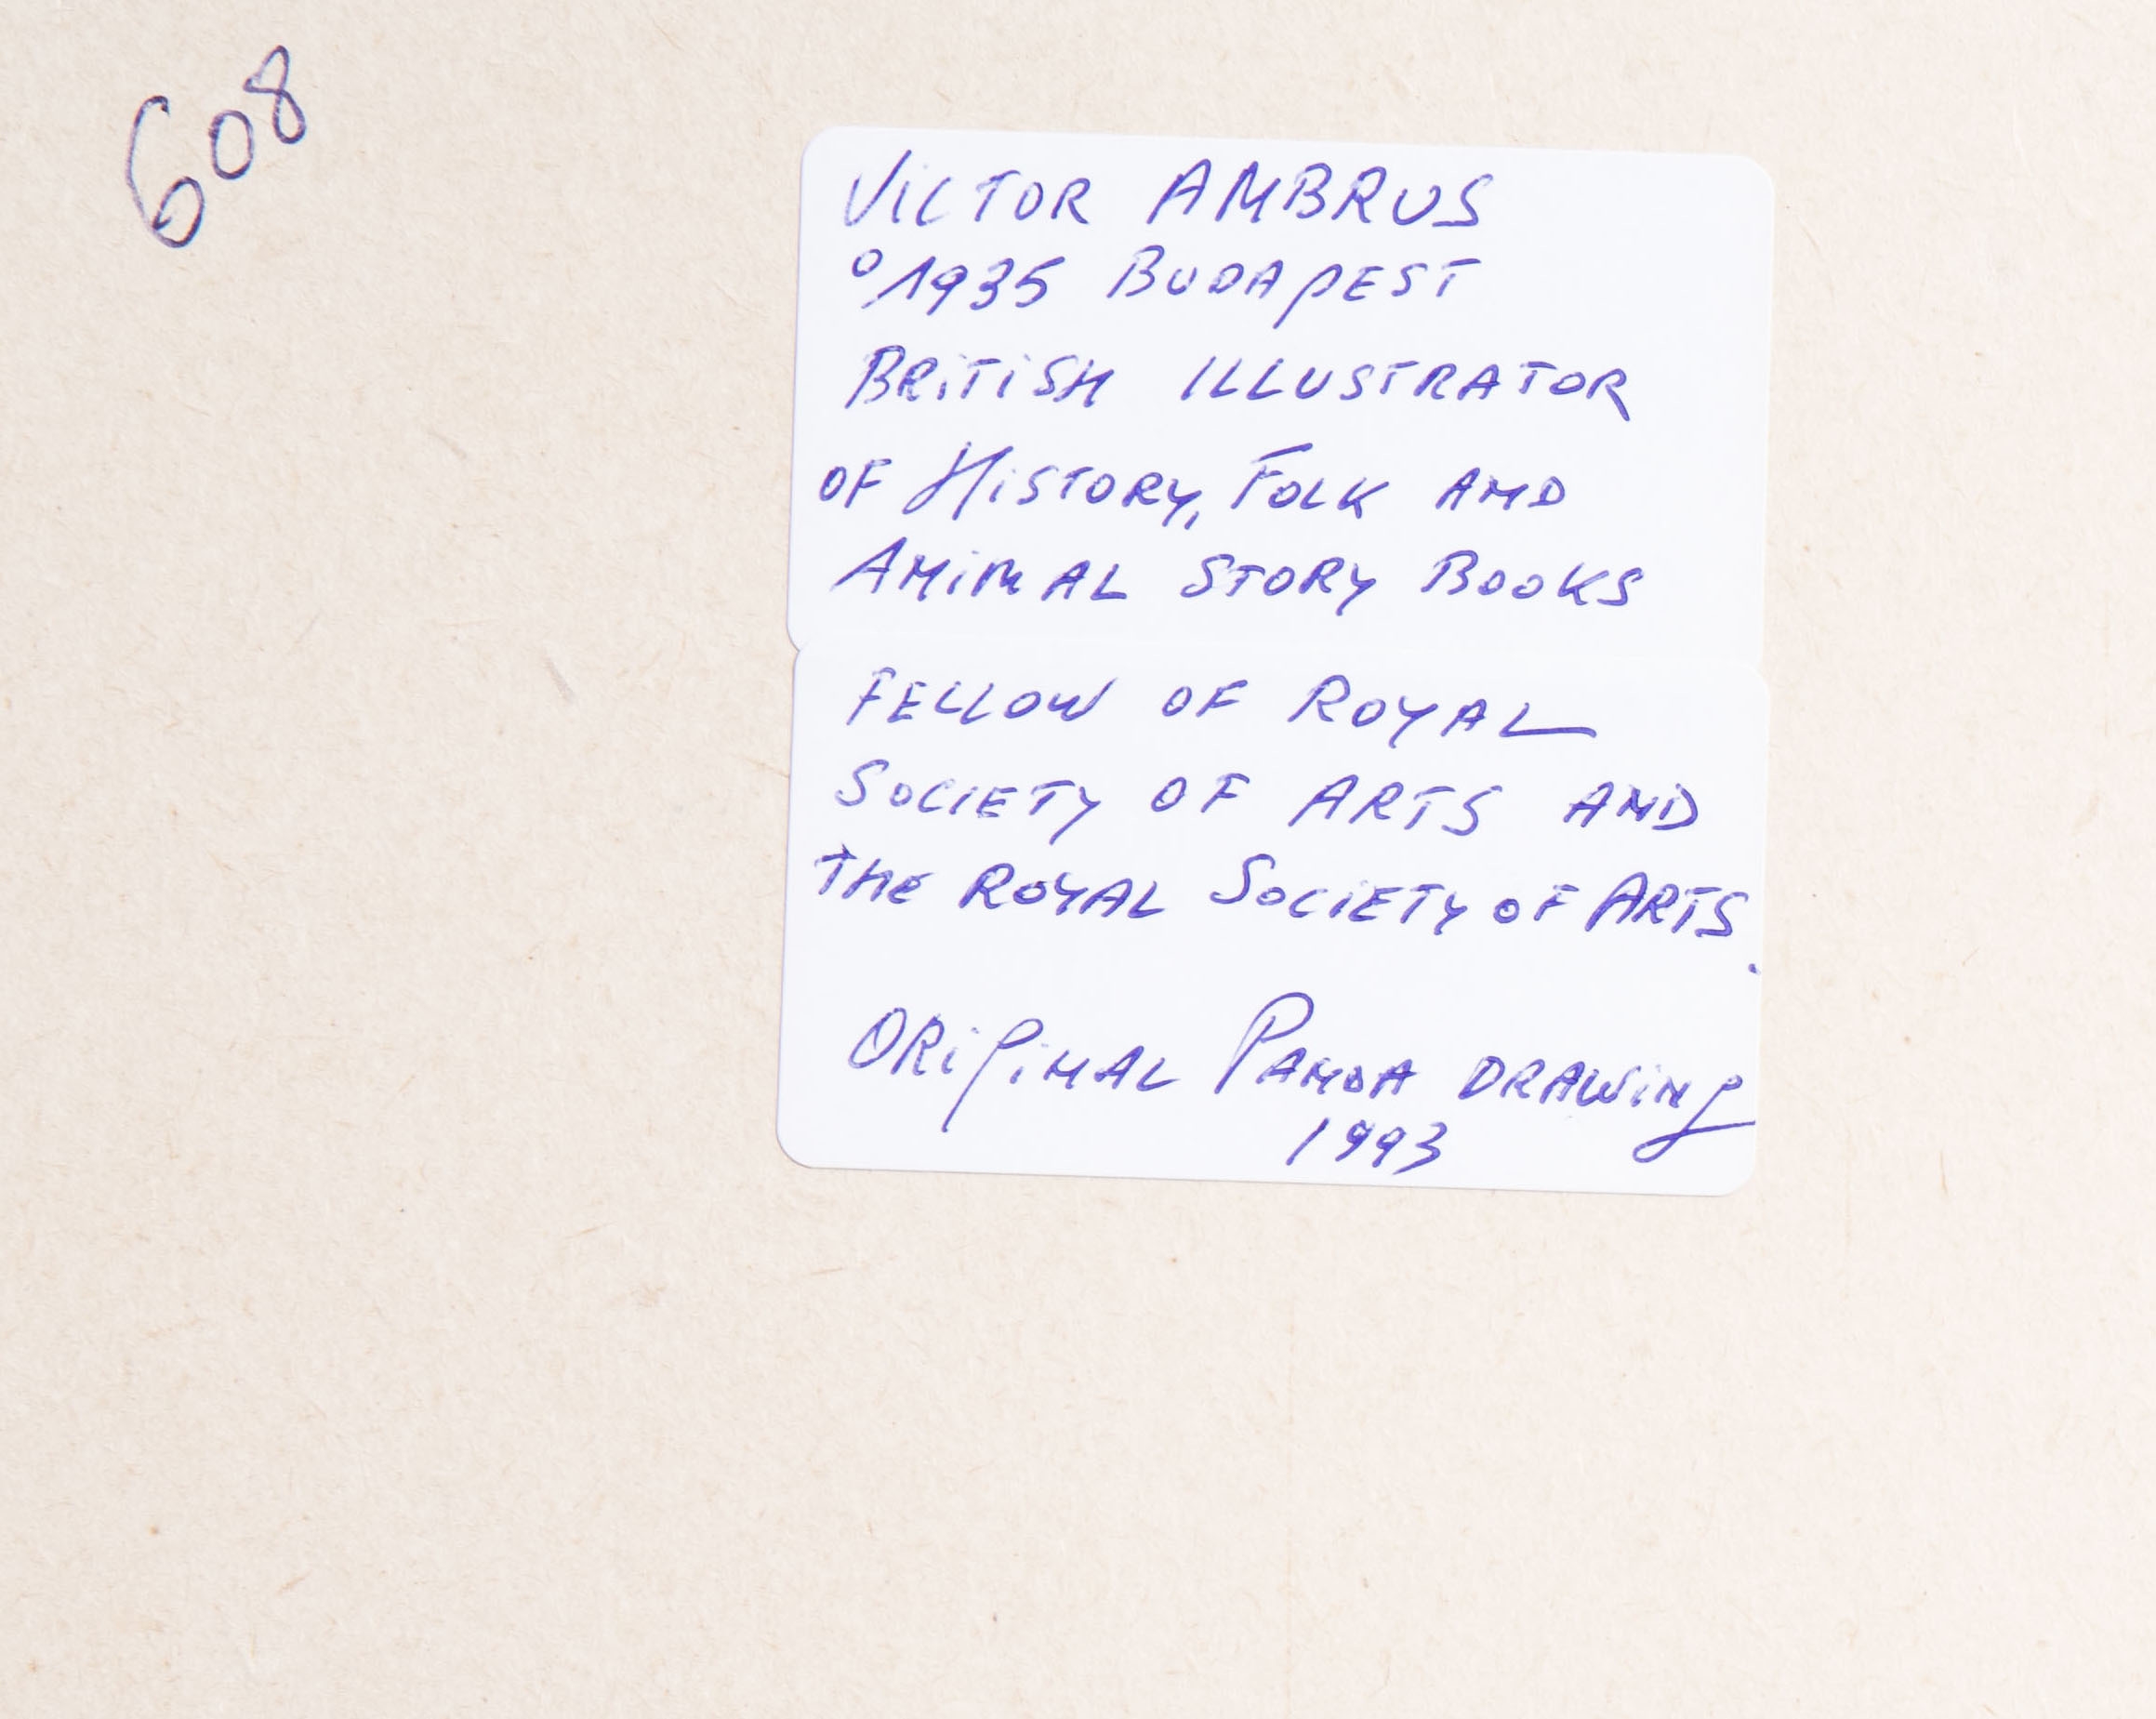 608
VICTOR AMBRUS
°1935 BUDAPEST
BRITISH ILLUSTRATOR
OF HISTORY, FOLK AND
ANIMAL STORY BOOKS
FELLOW OF ROYAL
SOCIETY OF ARTS AND
THE ROYAL SOCIETY OF ARTS.
ORIGINAL PANDA DRAWING
1993